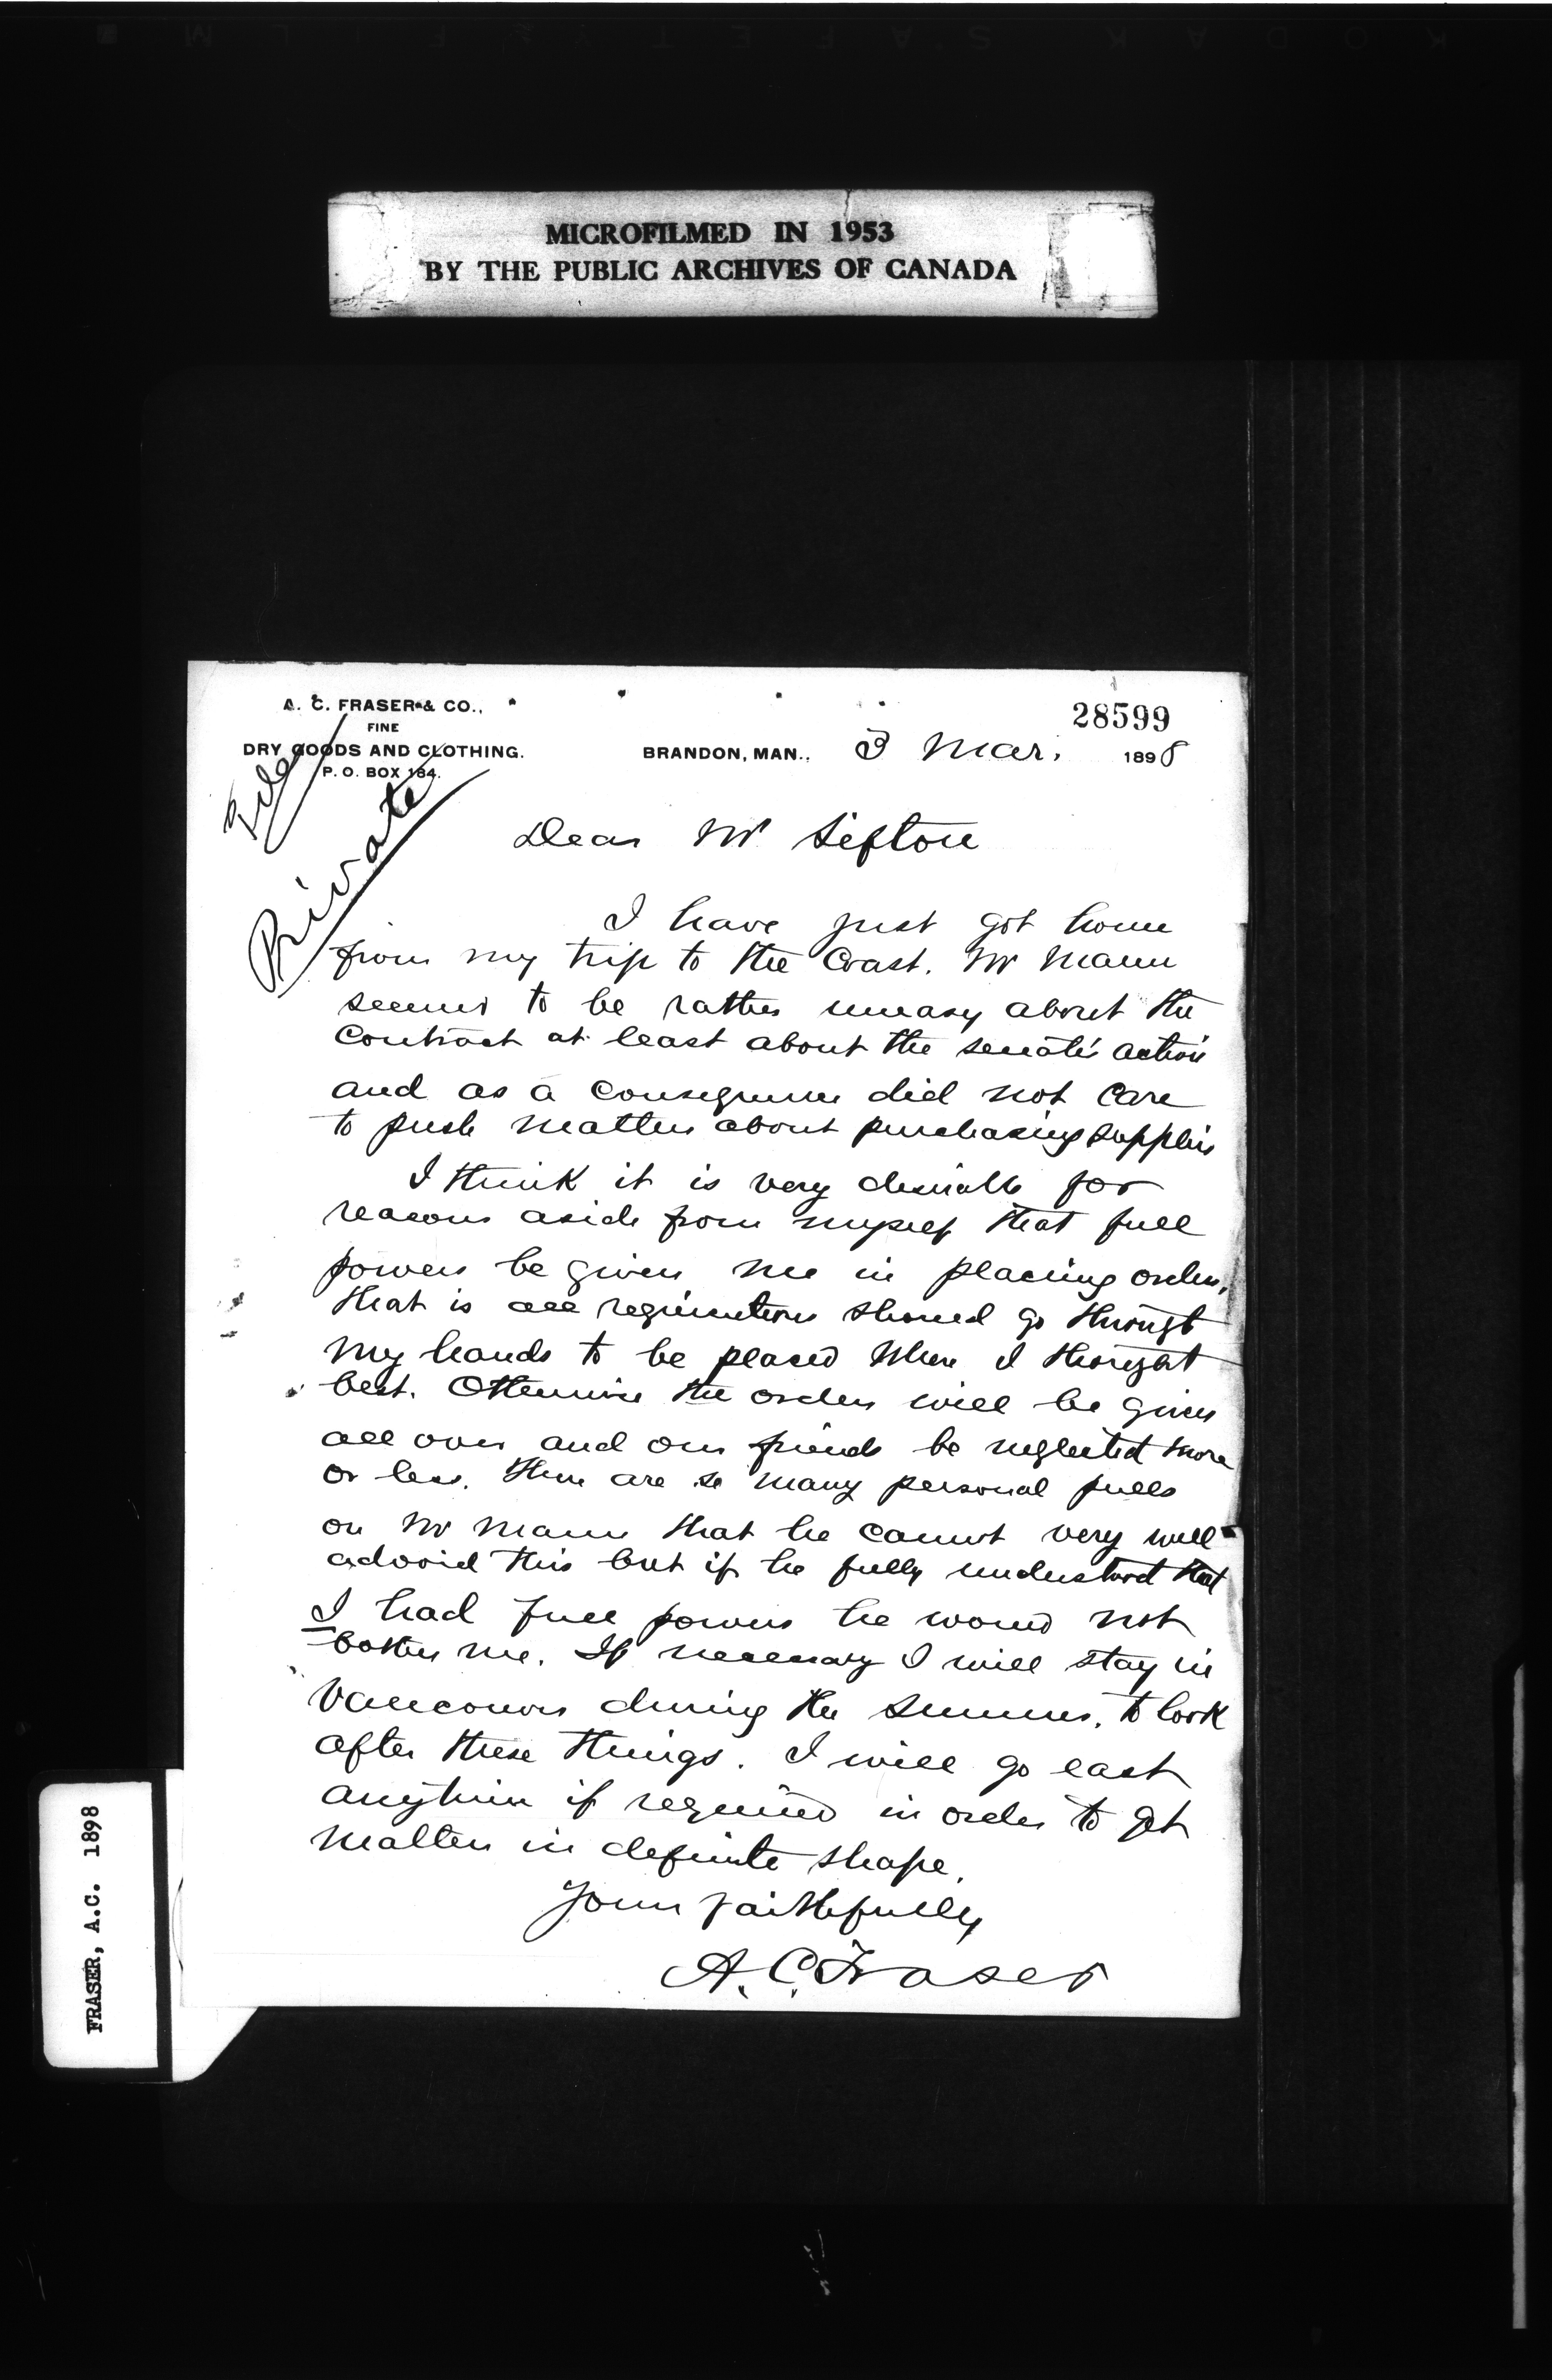 KODAK SAFETY FILM
MICROFILMED IN 1953
BY THE PUBLIC ARCHIVES OF CANADA
A. C. FRASER & CO.,
FINE
DRY GOODS AND CLOTHING.
P. O. BOX 184.
28599
BRANDON, MAN., 3 Mar. 1898
File
Private
Dear Mr Sifton
I have just got home
from my trip to the Coast. Mr Mann
seems to be rather uneasy about the
contract at least about the senate's action
and as a consequence did not care
to push matters about purchasing supplies
I think it is very desirable for
reasons aside from myself that full
powers be given me in placing orders,
that is all requisitions should go through
my hands to be placed where I thought
best. Otherwise the orders will be given
all over and our friends be neglected more
or less. There are so many personal pulls
on Mr Mann that he cannot very well
advoid this but if he fully understood that
I had full powers he would not
bother me. If necessary I will stay in
Vancouver during the summer, to look
after these things. I will go east
anytime if required in order to get
matters in definite shape.
Yours faithfully
A. C. Fraser
FRASER, A.C. 1898